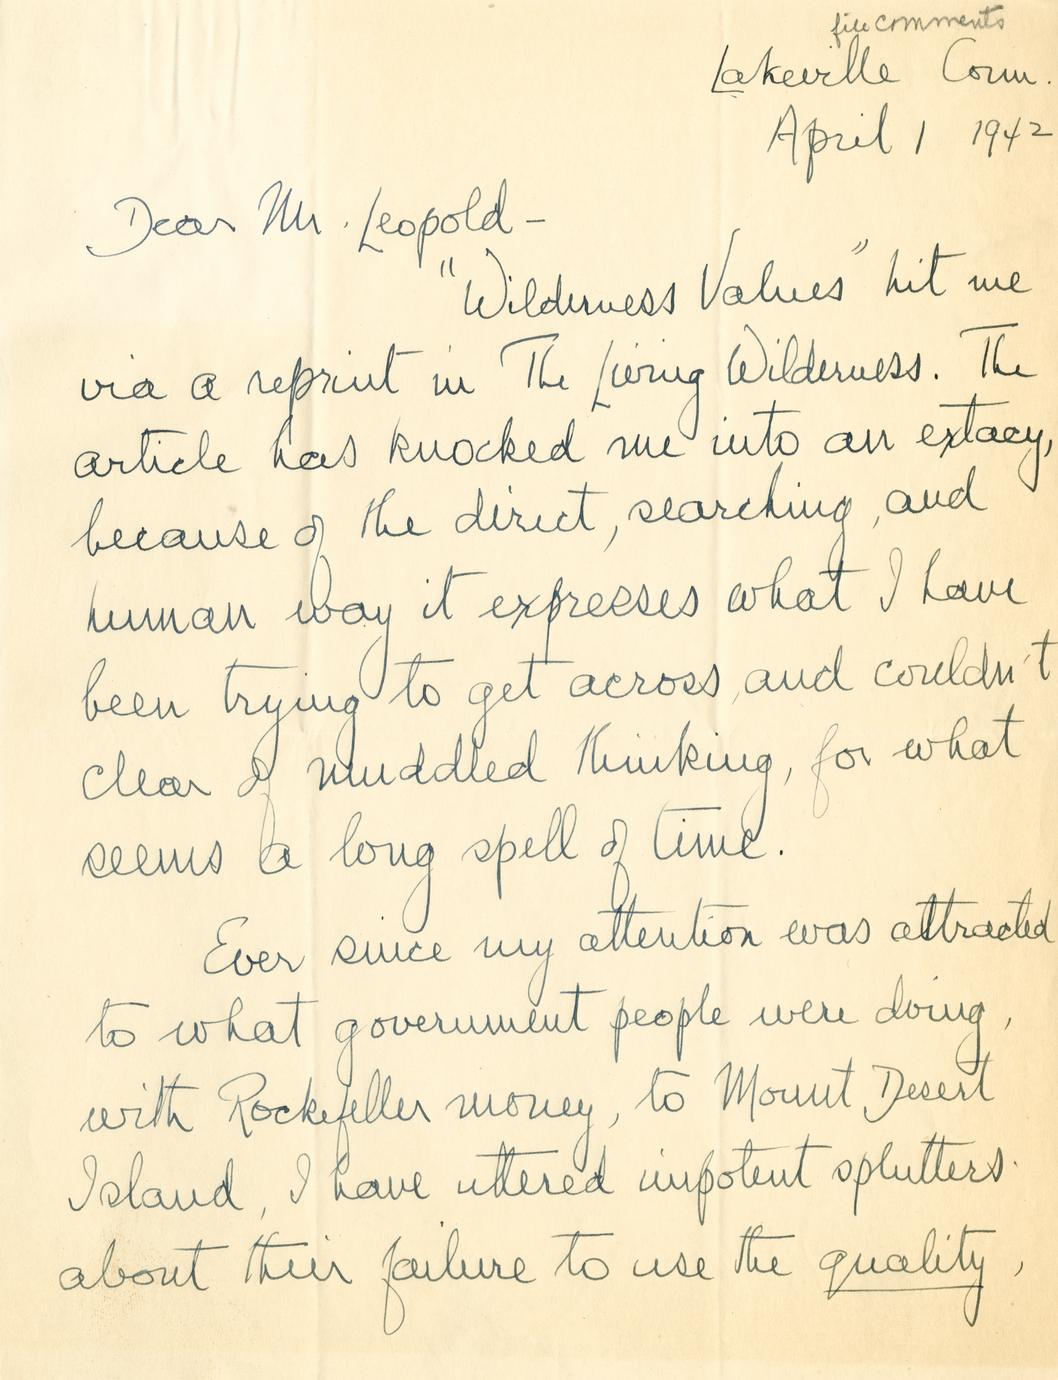 file comments
Lakeville Conn.
April 1 1942
Dear Mr. Leopold -
"Wilderness Values" hit me
via a reprint in The Living Wilderness. The
article has knocked me into an extacy,
because of the direct, searching, and
human way it expresses what I have
been trying to get across, and couldn't
clear of muddled thinking, for what
seems a long spell of time.
Ever since my attention was attracted
to what government people were doing,
with Rockefeller money, to Mount Desert
Island, I have uttered impotent splutters
about their failure to use the quality,